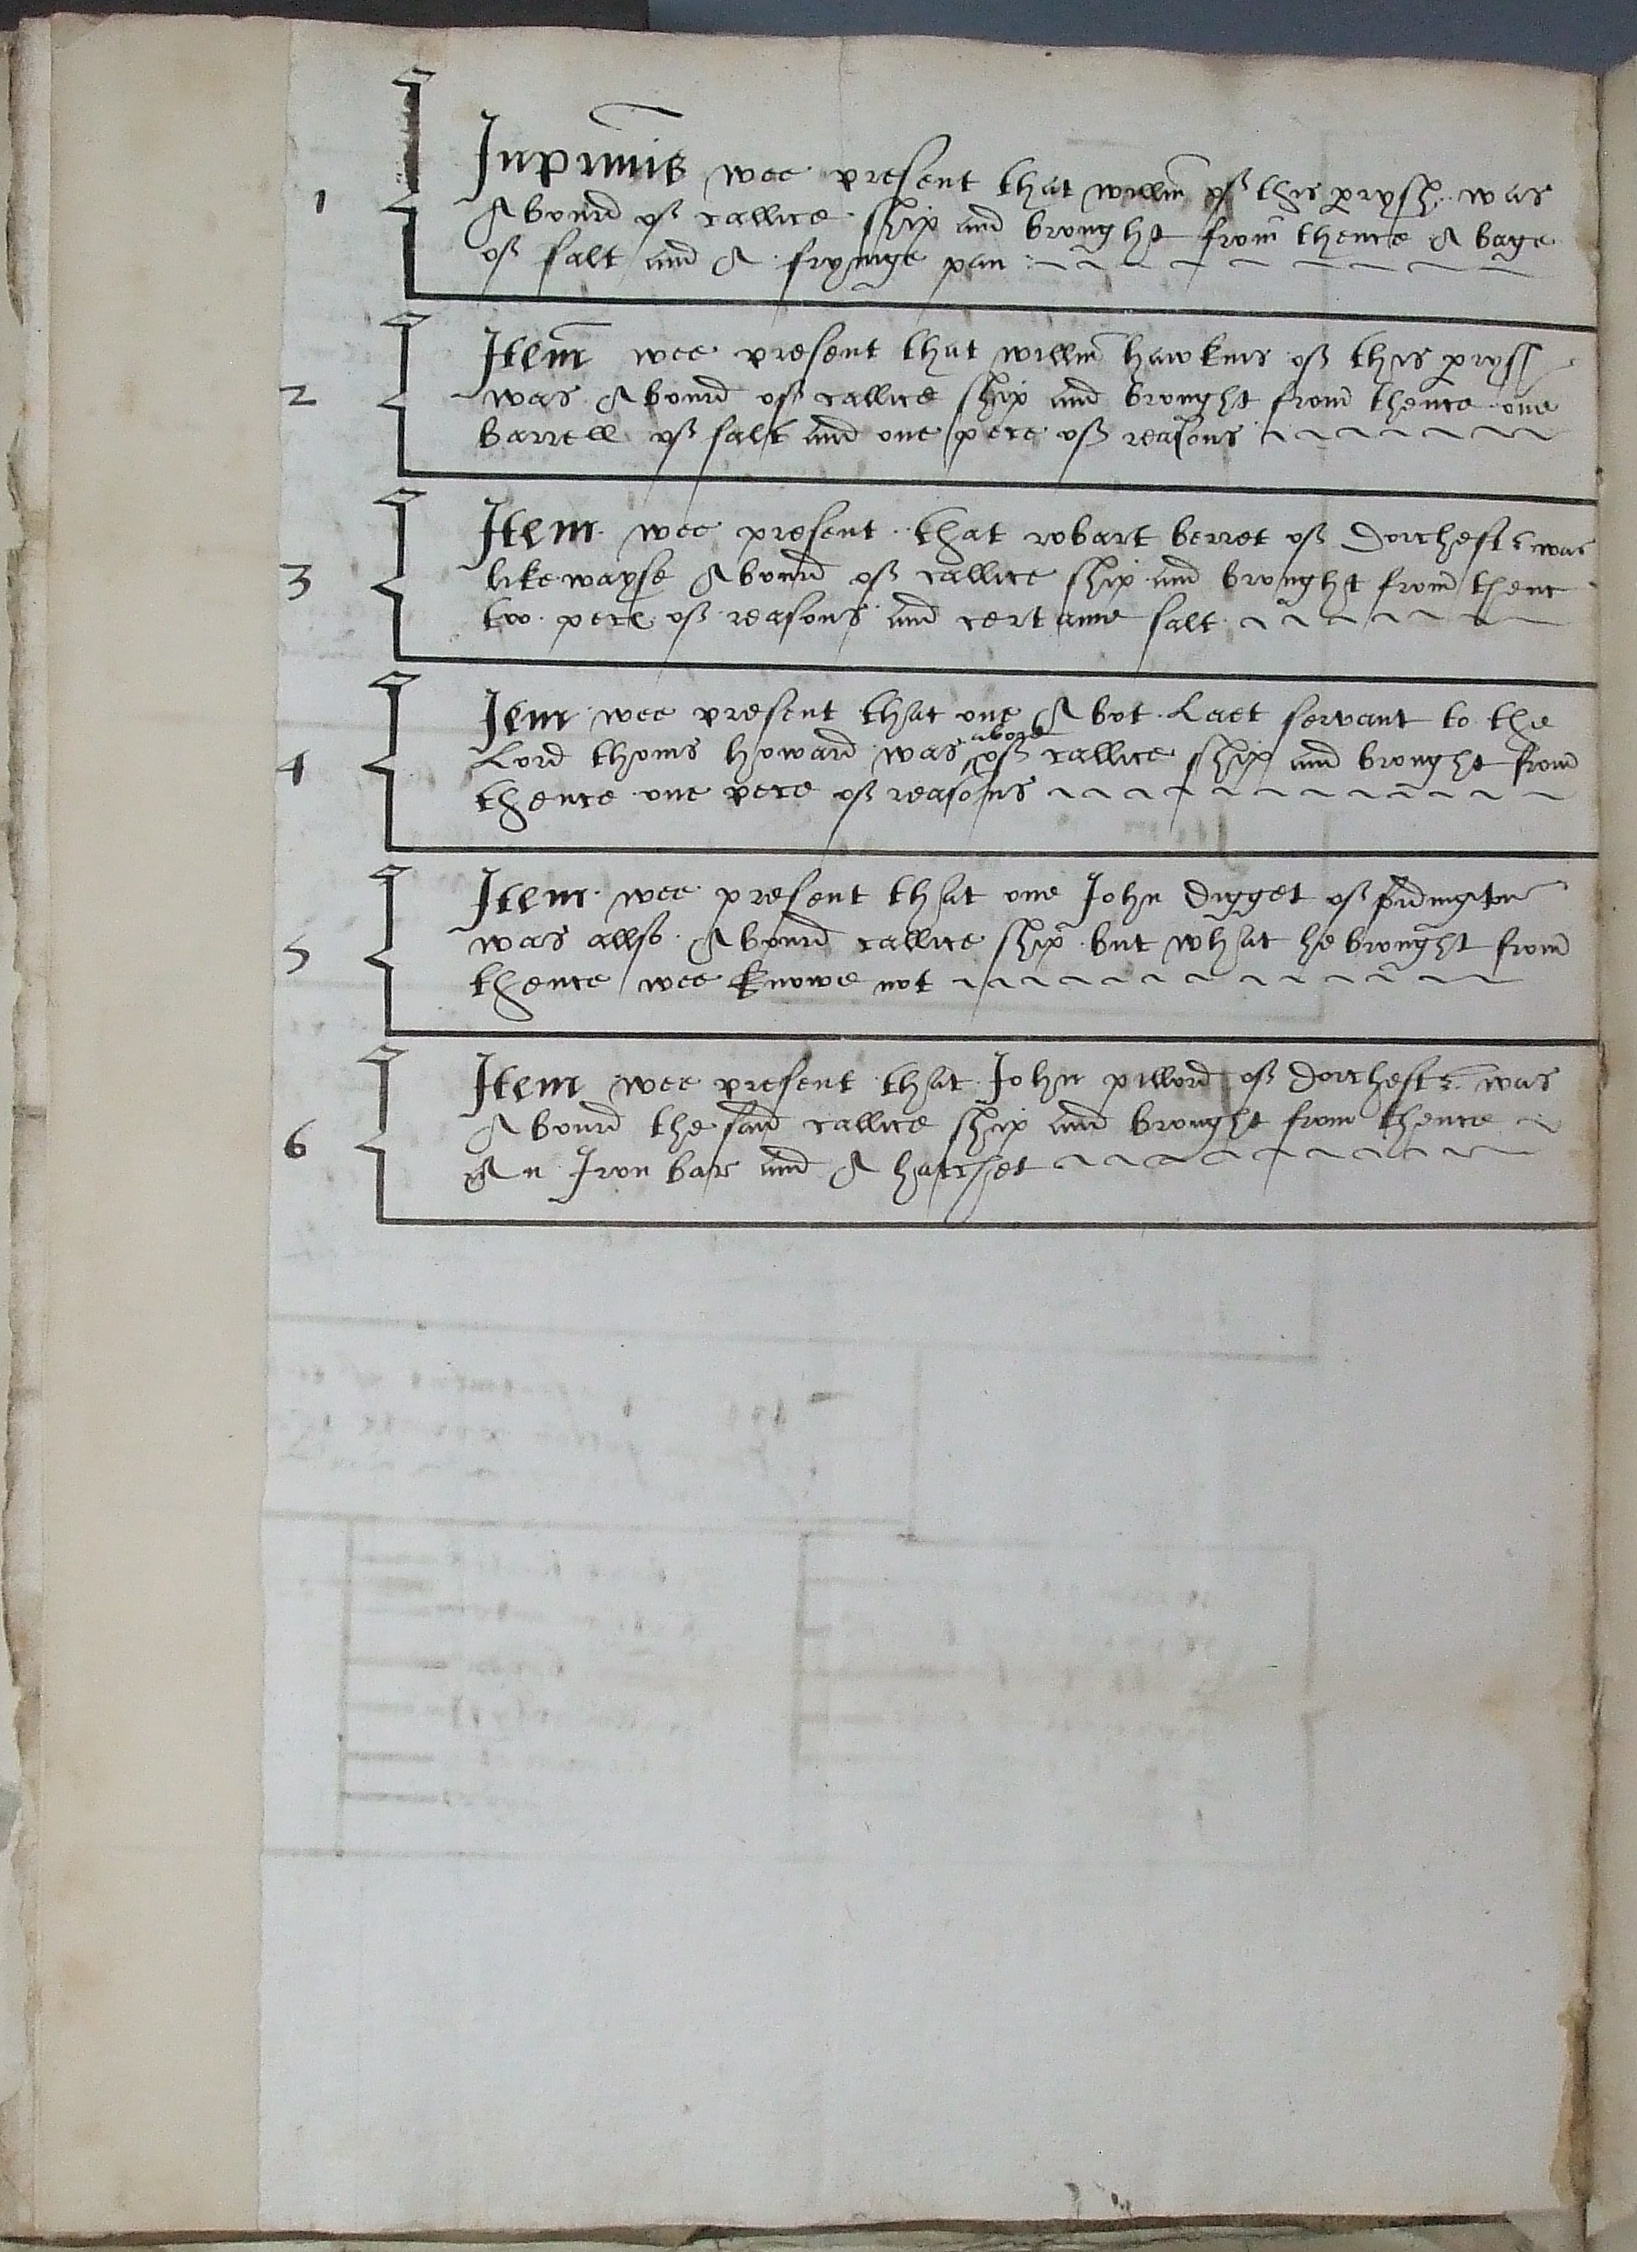 1
Inprimis wee present that willm of this prysh was
A bourd of callice ship and brought from thence A bage
of salt and A frynge pan
2
Item wee present that willm hawkins of this prysh
was A bourd of callice ship and brought from thence one
barrell of salt and one pece of reasons
3
Item wee present that robart berret of Dorchestr was
likewayse A bourd of callice ship and brought from thenc
two pece of reasons and certaine salt
4
Iem wee present that one Abot Laet servant to the
Lord thoms howard was abord of callice ship and brought from
thence one pece of reasons
5
Item wee present that one John digget of pidington
was allso A bourd callice ship but what he brought from
thence wee knowe not
6
Item wee present that John pillord of Dorchestr was
A bourd the said callice ship and brought from thence
An Iron bar and A hatchet